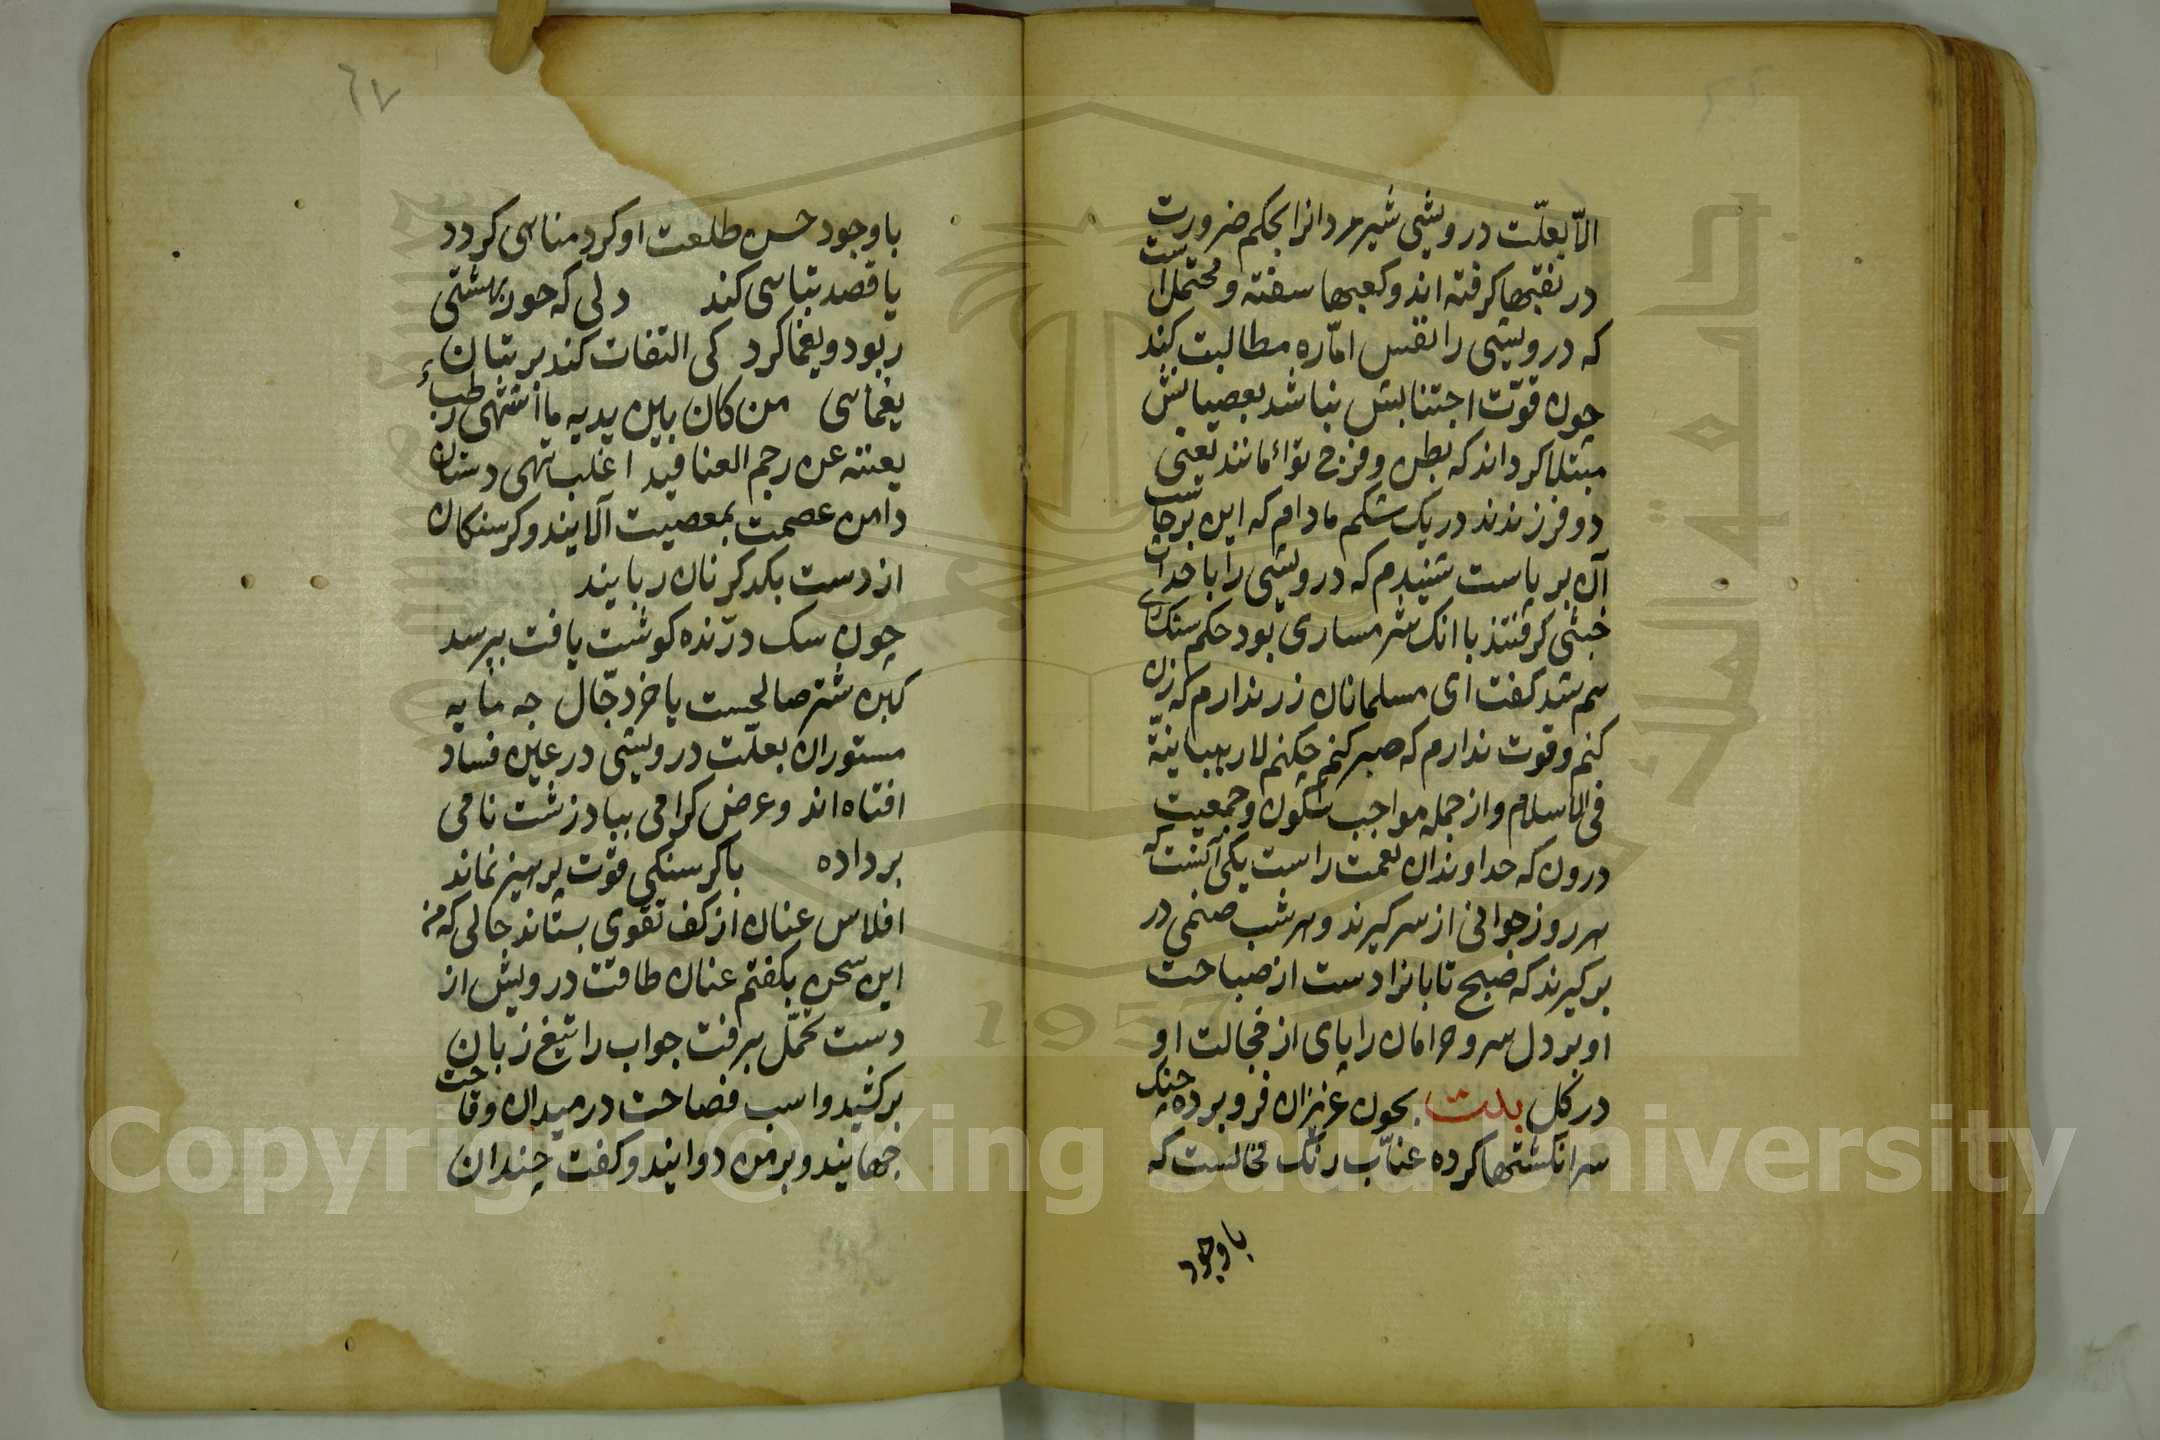 الّا بعلّت درویشی شیر مردانرا بحکم ضرورت
در نقبها کرفته اند و کعبها سفته و محتمل است
که درویشی را نفس امّاره مطالبت کند
چون قوّت اجتنابش نباشد بعصیانش
مبتلا کرداند که بطن و فرج توأمانند یعنی
دو فرزندند در یک شکم مادام که این برجاست
آن بر پاست شنیدم که درویشی را با حداث
خبثی کرفتند با انک شرمساری بود حکم سنکساری
هم شد کفت ای مسلمانان زر ندارم که زن
کنم و قوت ندارم که صبر کنم چکنم لا رهبانیّة
فی الاسلام و از جمله مواجب سکون و جمعیت
درون که خداوندان نعمت راست یکی آنست که
هر روز جوانی از سر کیرند و هر شب صنمی در
بر کیرند که صبح تابانرا دست از صباحت
او بر دل سرو خرامان را پای از خجالت او
در کل بیت بخون عزیزان فرو برده چنک
سر انکشتها کرده عنّاب رنک محالست که
باوجود
٦٧
باوجود حسن طلعت او کرد مناهی کردد
یا قصد تباهی کند دلی که حور بهشتی
ربود و یغما کرد کی التفات کند بر بتان
یغمایی من کان بین یدیه ما اشتهی رطب
یغنیه عن رجم العناقید اغلب تهی دستان
دامن عصمت بمعصیت آلایند و کرسنکان
از دست بکدکر نان ربایند
چون سک درّنده کوشت یافت نپرسد
کین شتر صالحست یا خر دجّال چه مایه
مستوران بعلّت درویشی در عین فساد
افتاه اند و عرض کرامی بباد زشت نامی
برداده با کرسنکی قوّت پرهیز نماند
افلاس عنان از کف تقوی بستاند حالی که من
این سخن بکفتم عنان طاقت درویش از
دست تحمّل برفت جواب را تیغ زبان
برکشید و اسب فصاحت در میدان وقاحت
جهانید و بر من دوانید و کفت چندان
Copyright © King Saud University
جامعة الملك سعود
1957